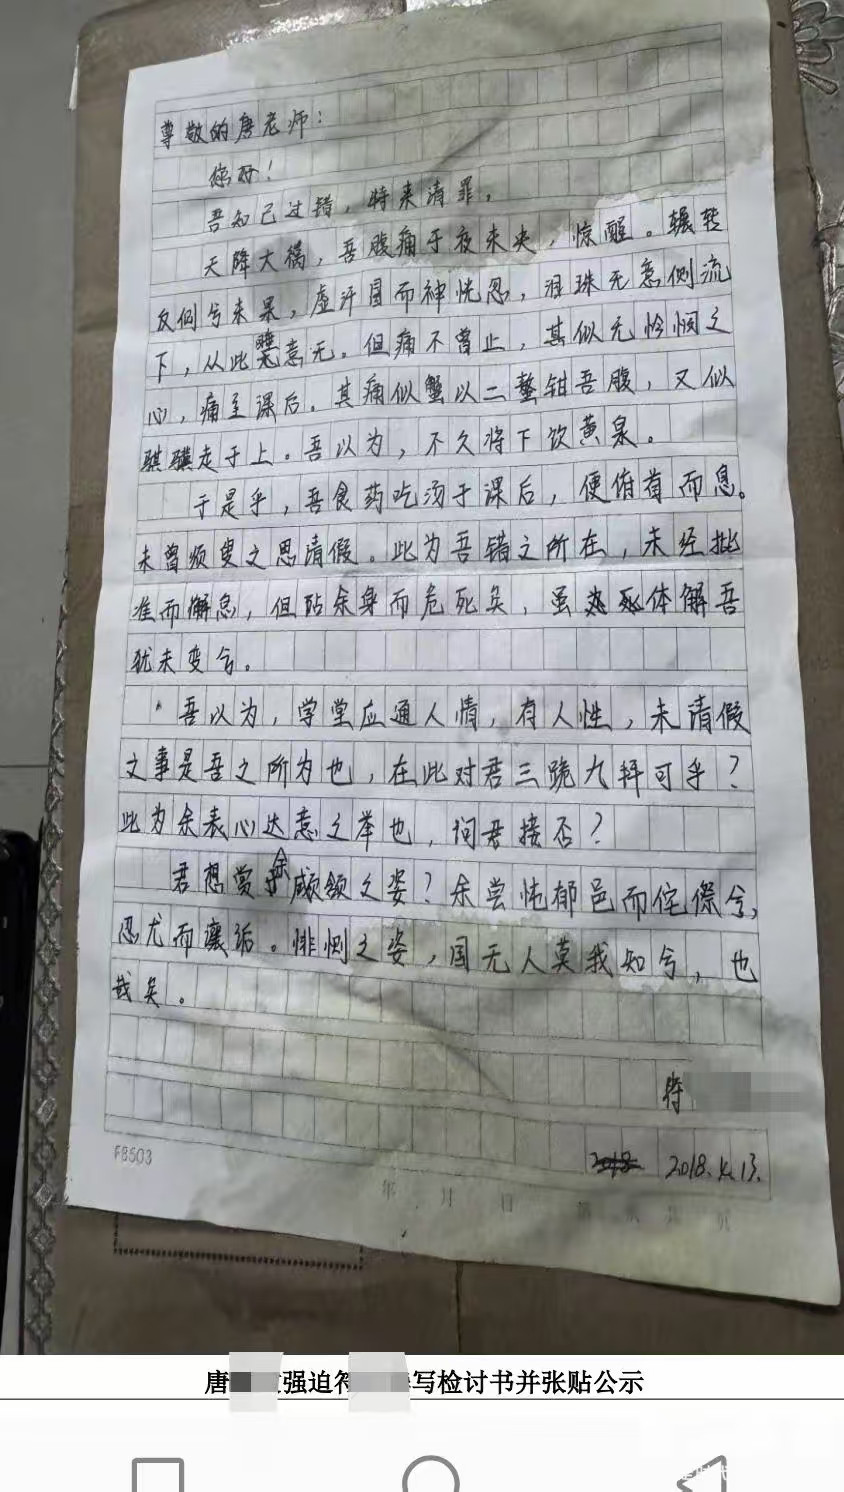 尊敬的唐老师：
您好！
吾知己过错，特来请罪。
天降大祸，吾腹痛于夜未央，惊醒。辗转
反侧兮未果，虚汗冒而神恍忽，泪珠无意侧流
下，从此意无。但痛不曾止，其似无怜悯之
心，痛至课后。其痛似蟹以二螯钳吾腹，又似
骐骥走于上。吾以为，不久将下饮黄泉。
于是乎，吾食药吃汤于课后，便俯首而息。
未曾须臾之思请假。此为吾错之所在，未经批
准而懈怠，但阽余身而危死矣，虽体解吾
犹未变兮。
吾以为，学堂应通人情，有人性，未请假
之事是吾之所为也，在此对君三跪九拜可乎？
此为余表心达意之举也，问君接否？
君想赏余顑颔之姿？余尝忳郁邑而侘傺兮，
忍尤而攘诟。悱恻之姿，国无人莫我知兮，也
哉矣。
符
2018.4.13.
F8503
年 月 日 第 页 共 页
唐强迫符写检讨书并张贴公示